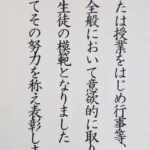 たは授業をはじめ行事等、
全般において意欲的に取り
生徒の模範となりました
てその努力を称え表彰しま